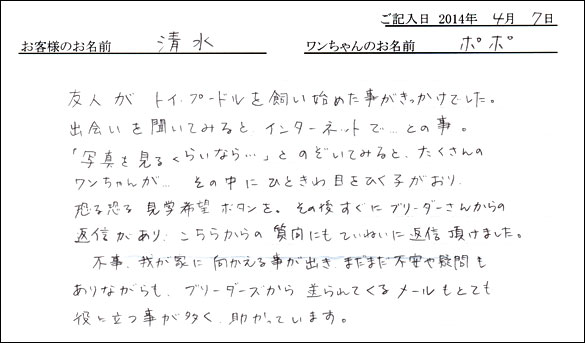 ご記入日 2014年 4月 7日
お客様のお名前 清水 ワンちゃんのお名前 ポポ
友人が トイ・プードルを飼い始めた事がきっかけでした。
出会いを聞いてみると、インターネットで… との事。
「写真を見るくらいなら…」とのぞいてみると、たくさんの
ワンちゃんが… その中にひときわ目をひく子がおり、
恐る恐る 見学希望 ボタンを。その後すぐにブリーダーさんからの
返信があり、こちらからの質問にもていねいに返信頂けました。
不事、我が家に 向かえる事が出き まだまだ不安や疑問も
ありながらも、ブリーダーズから 送られてくるメールもとても
役に立つ事が多く、助かっています。